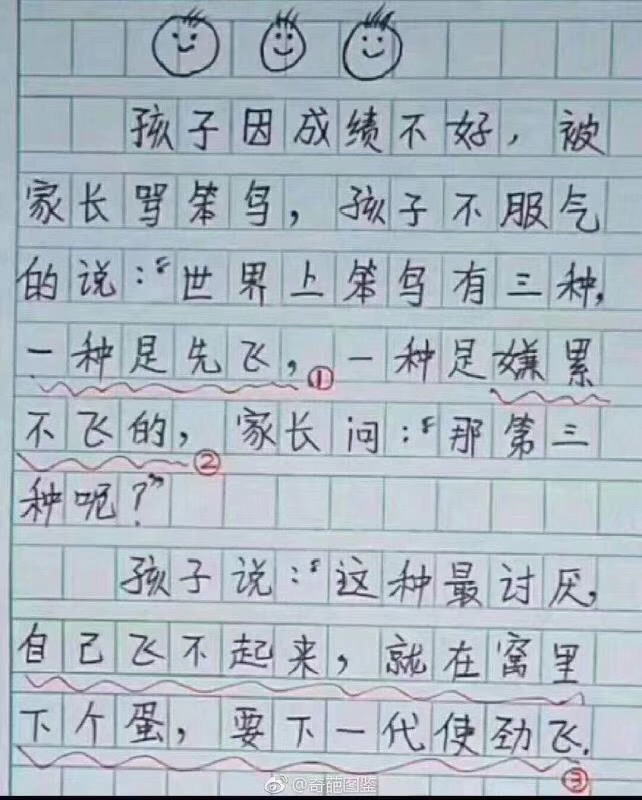 孩子因成绩不好，被
家长骂笨鸟，孩子不服气
的说：“世界上笨鸟有三种，
一种是先飞，①一种是嫌累
不飞的，②家长问：“那第三
种呢？”
孩子说：“这种最讨厌，
自己飞不起来，就在窝里
下个蛋，要下一代使劲飞.
③
@奇葩图鉴